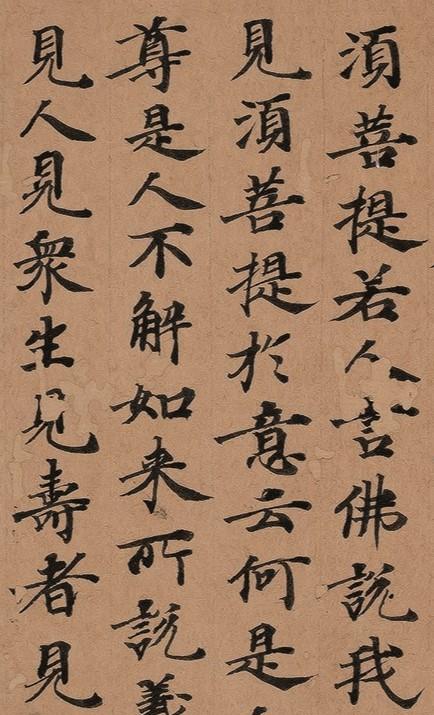 須菩提若人言佛說我
見須菩提於意云何是
尊是人不解如来所說義
見人見衆生見壽者見